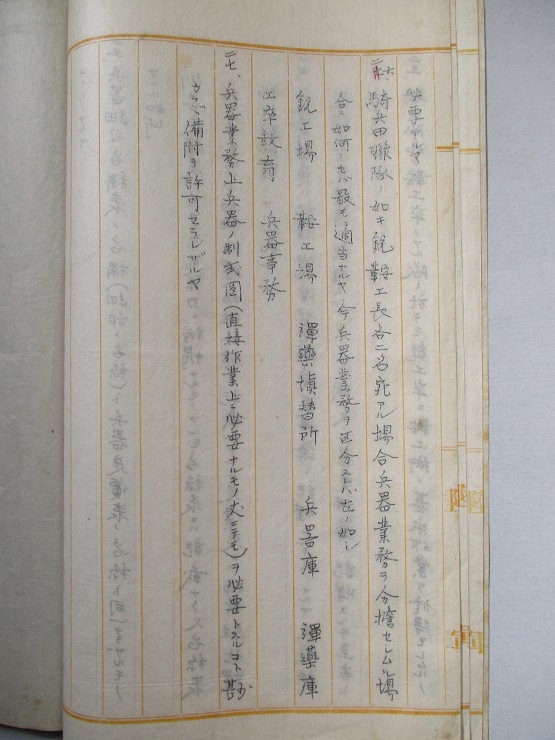 必要ナルヤ
二十六、騎兵聯隊ノ如キ銃鞍工長各二名宛アル場合兵器業務ヲ分擔セシムル場
合ニ如何ニセバ最モ適当ナルヤ今兵器業務ヲ区分スレバ左ノ如シ
銃工場 鞍工場 彈藥塡替所 兵器庫 彈藥庫
工卒教育 兵器事務
二七、兵器業務上兵器ノ制式図(直接作業上ニ必要ナルモノ丈ニテモ)ヲ必要トスルコト尠
カラズ備附ヲ許可セラレザルヤ